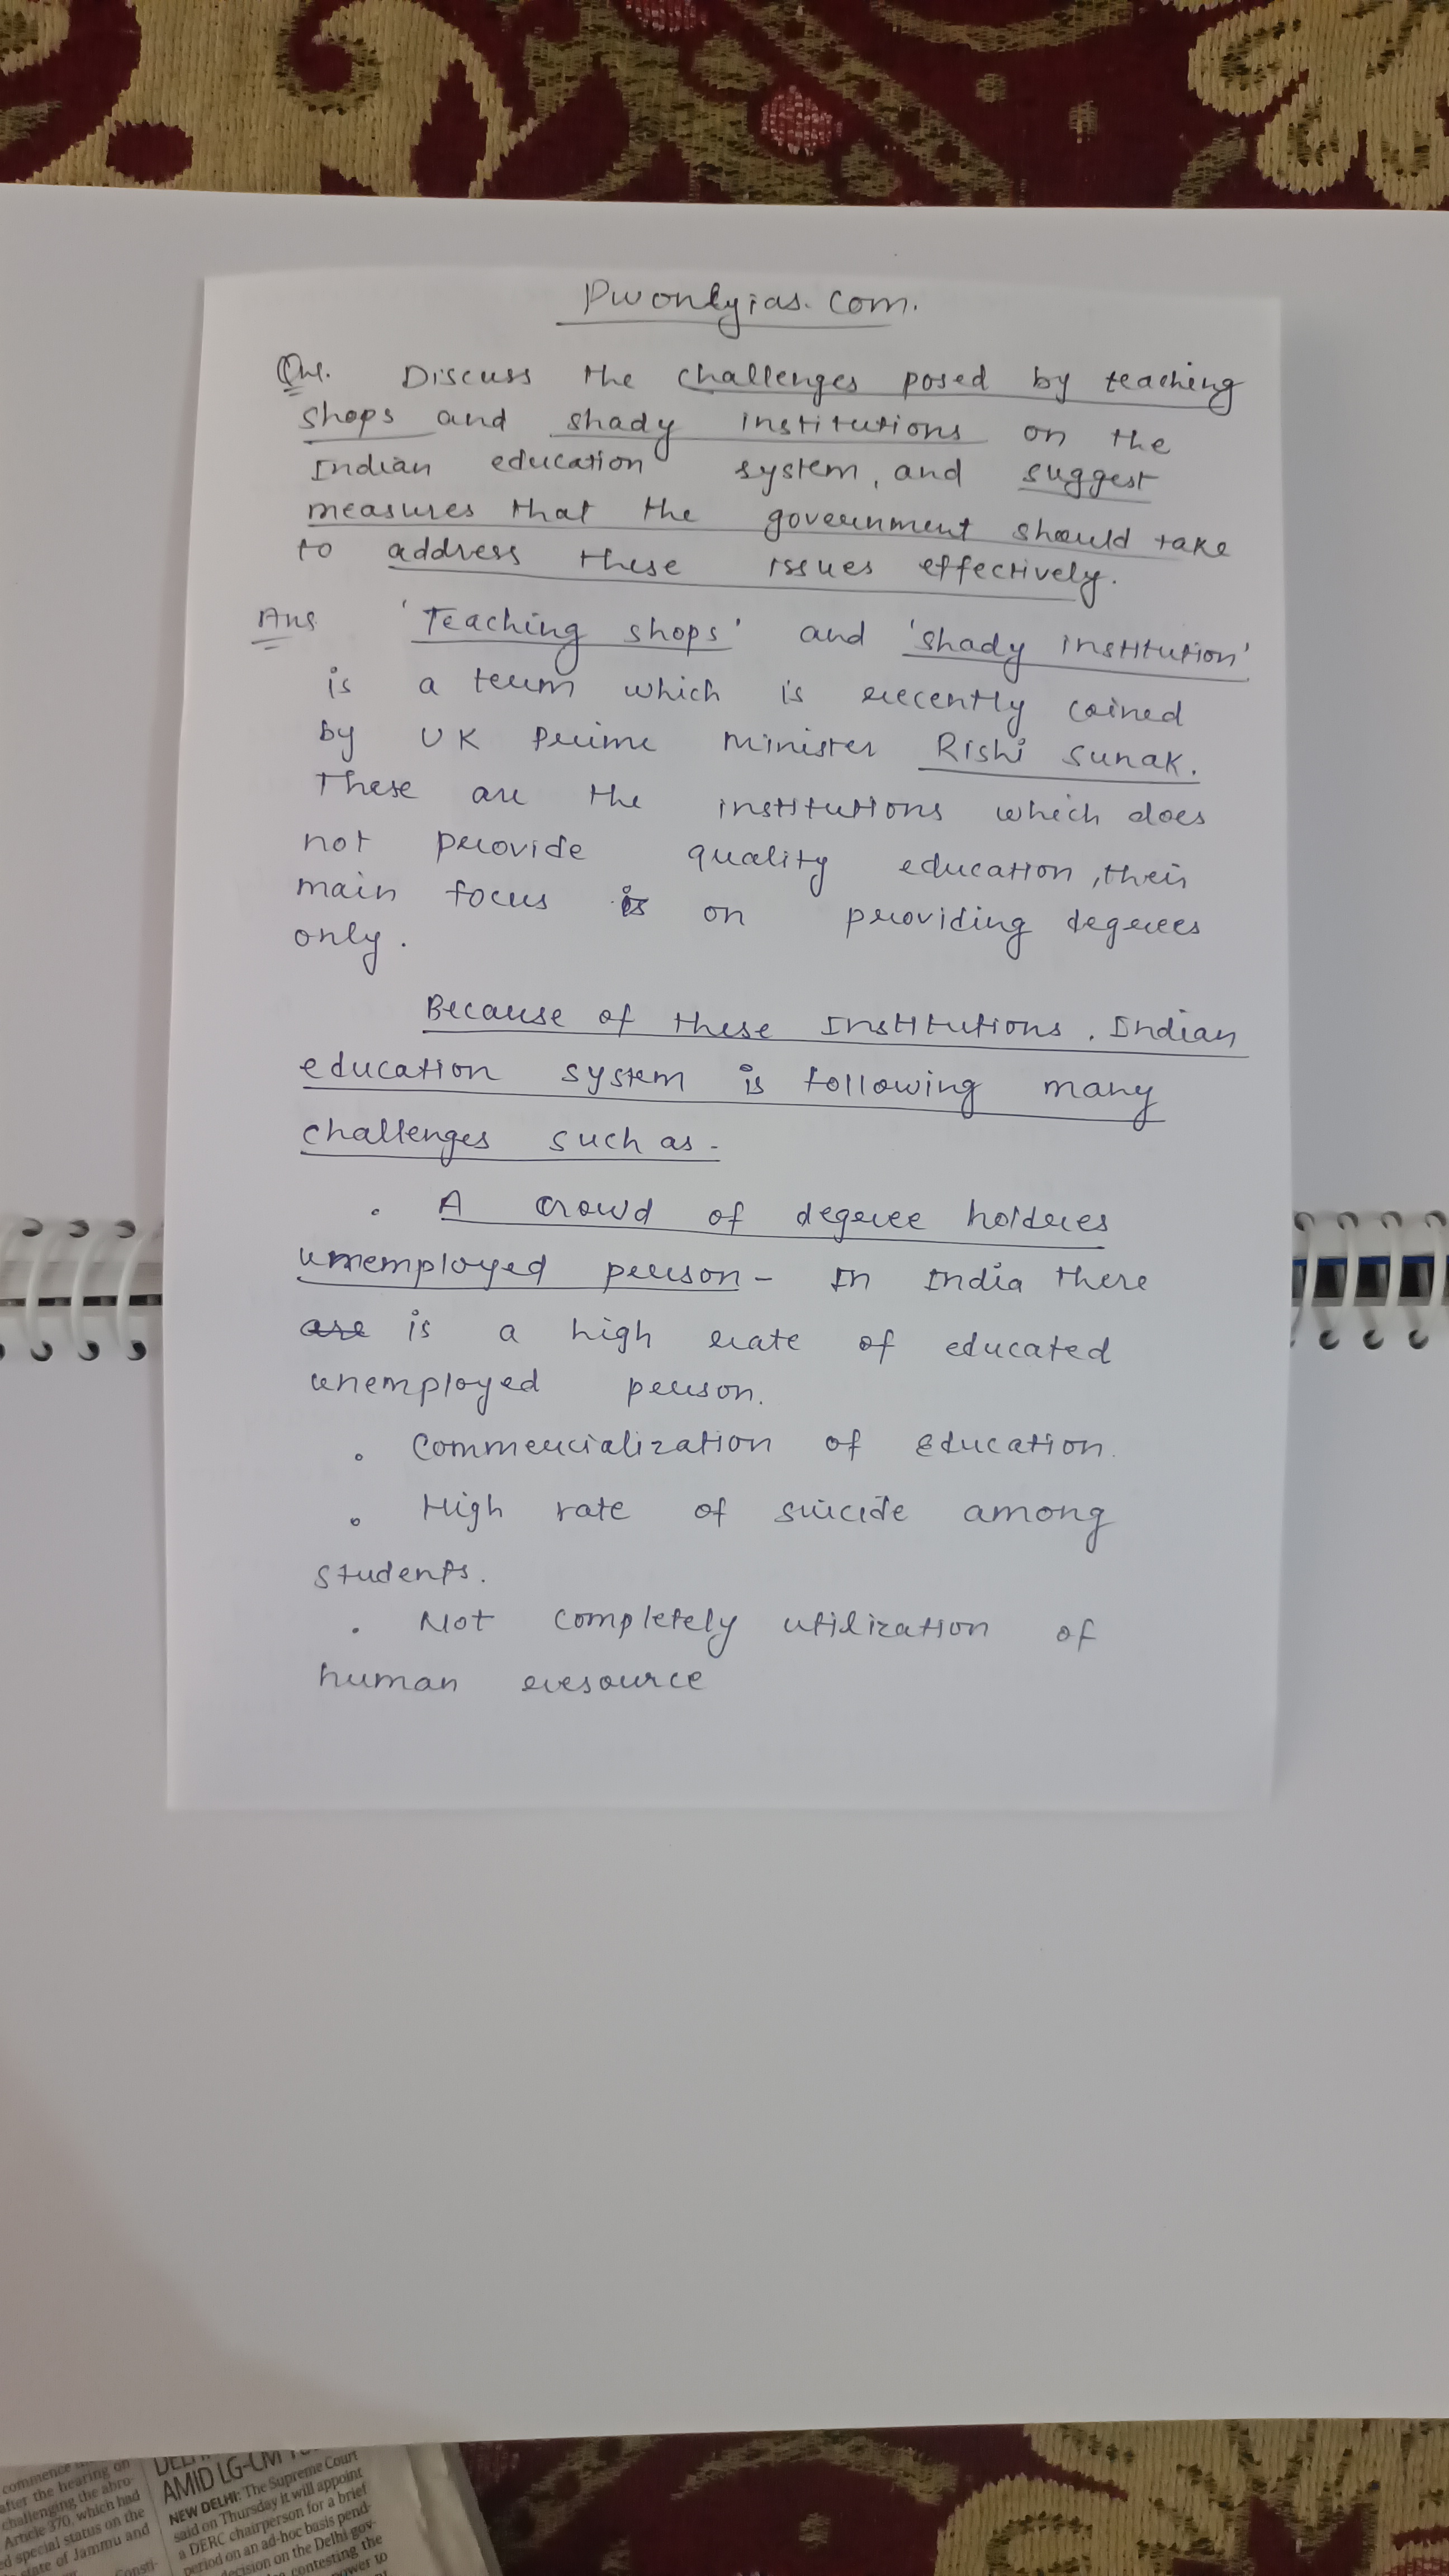 Pwonlyias.com.
Que. Discuss the challenges posed by teaching
shops and shady institutions on the
Indian education system, and suggest
measures that the government should take
to address these issues effectively.
Ans 'Teaching shops' and 'shady institution'
is a term which is recently coined
by UK Prime Minister Rishi Sunak.
These are the institutions which does
not provide quality education, their
main focus is on providing degrees
only.
Because of these Institutions, Indian
education system is following many
challenges such as -
• A crowd of degree holders
unemployed person - In India there
are is a high rate of educated
unemployed person.
• Commercialization of Education.
• High rate of suicide among
students.
• Not completely utilization of
human resource
commence
after the hearing on
challenging the abro-
Article 370, which had
d special status on the
state of Jammu and
Consti-
AMID LG-CM
NEW DELHI: The Supreme Court
said on Thursday it will appoint
a DERC chairperson for a brief
period on an ad-hoc basis pend-
decision on the Delhi gov-
contesting the
power to